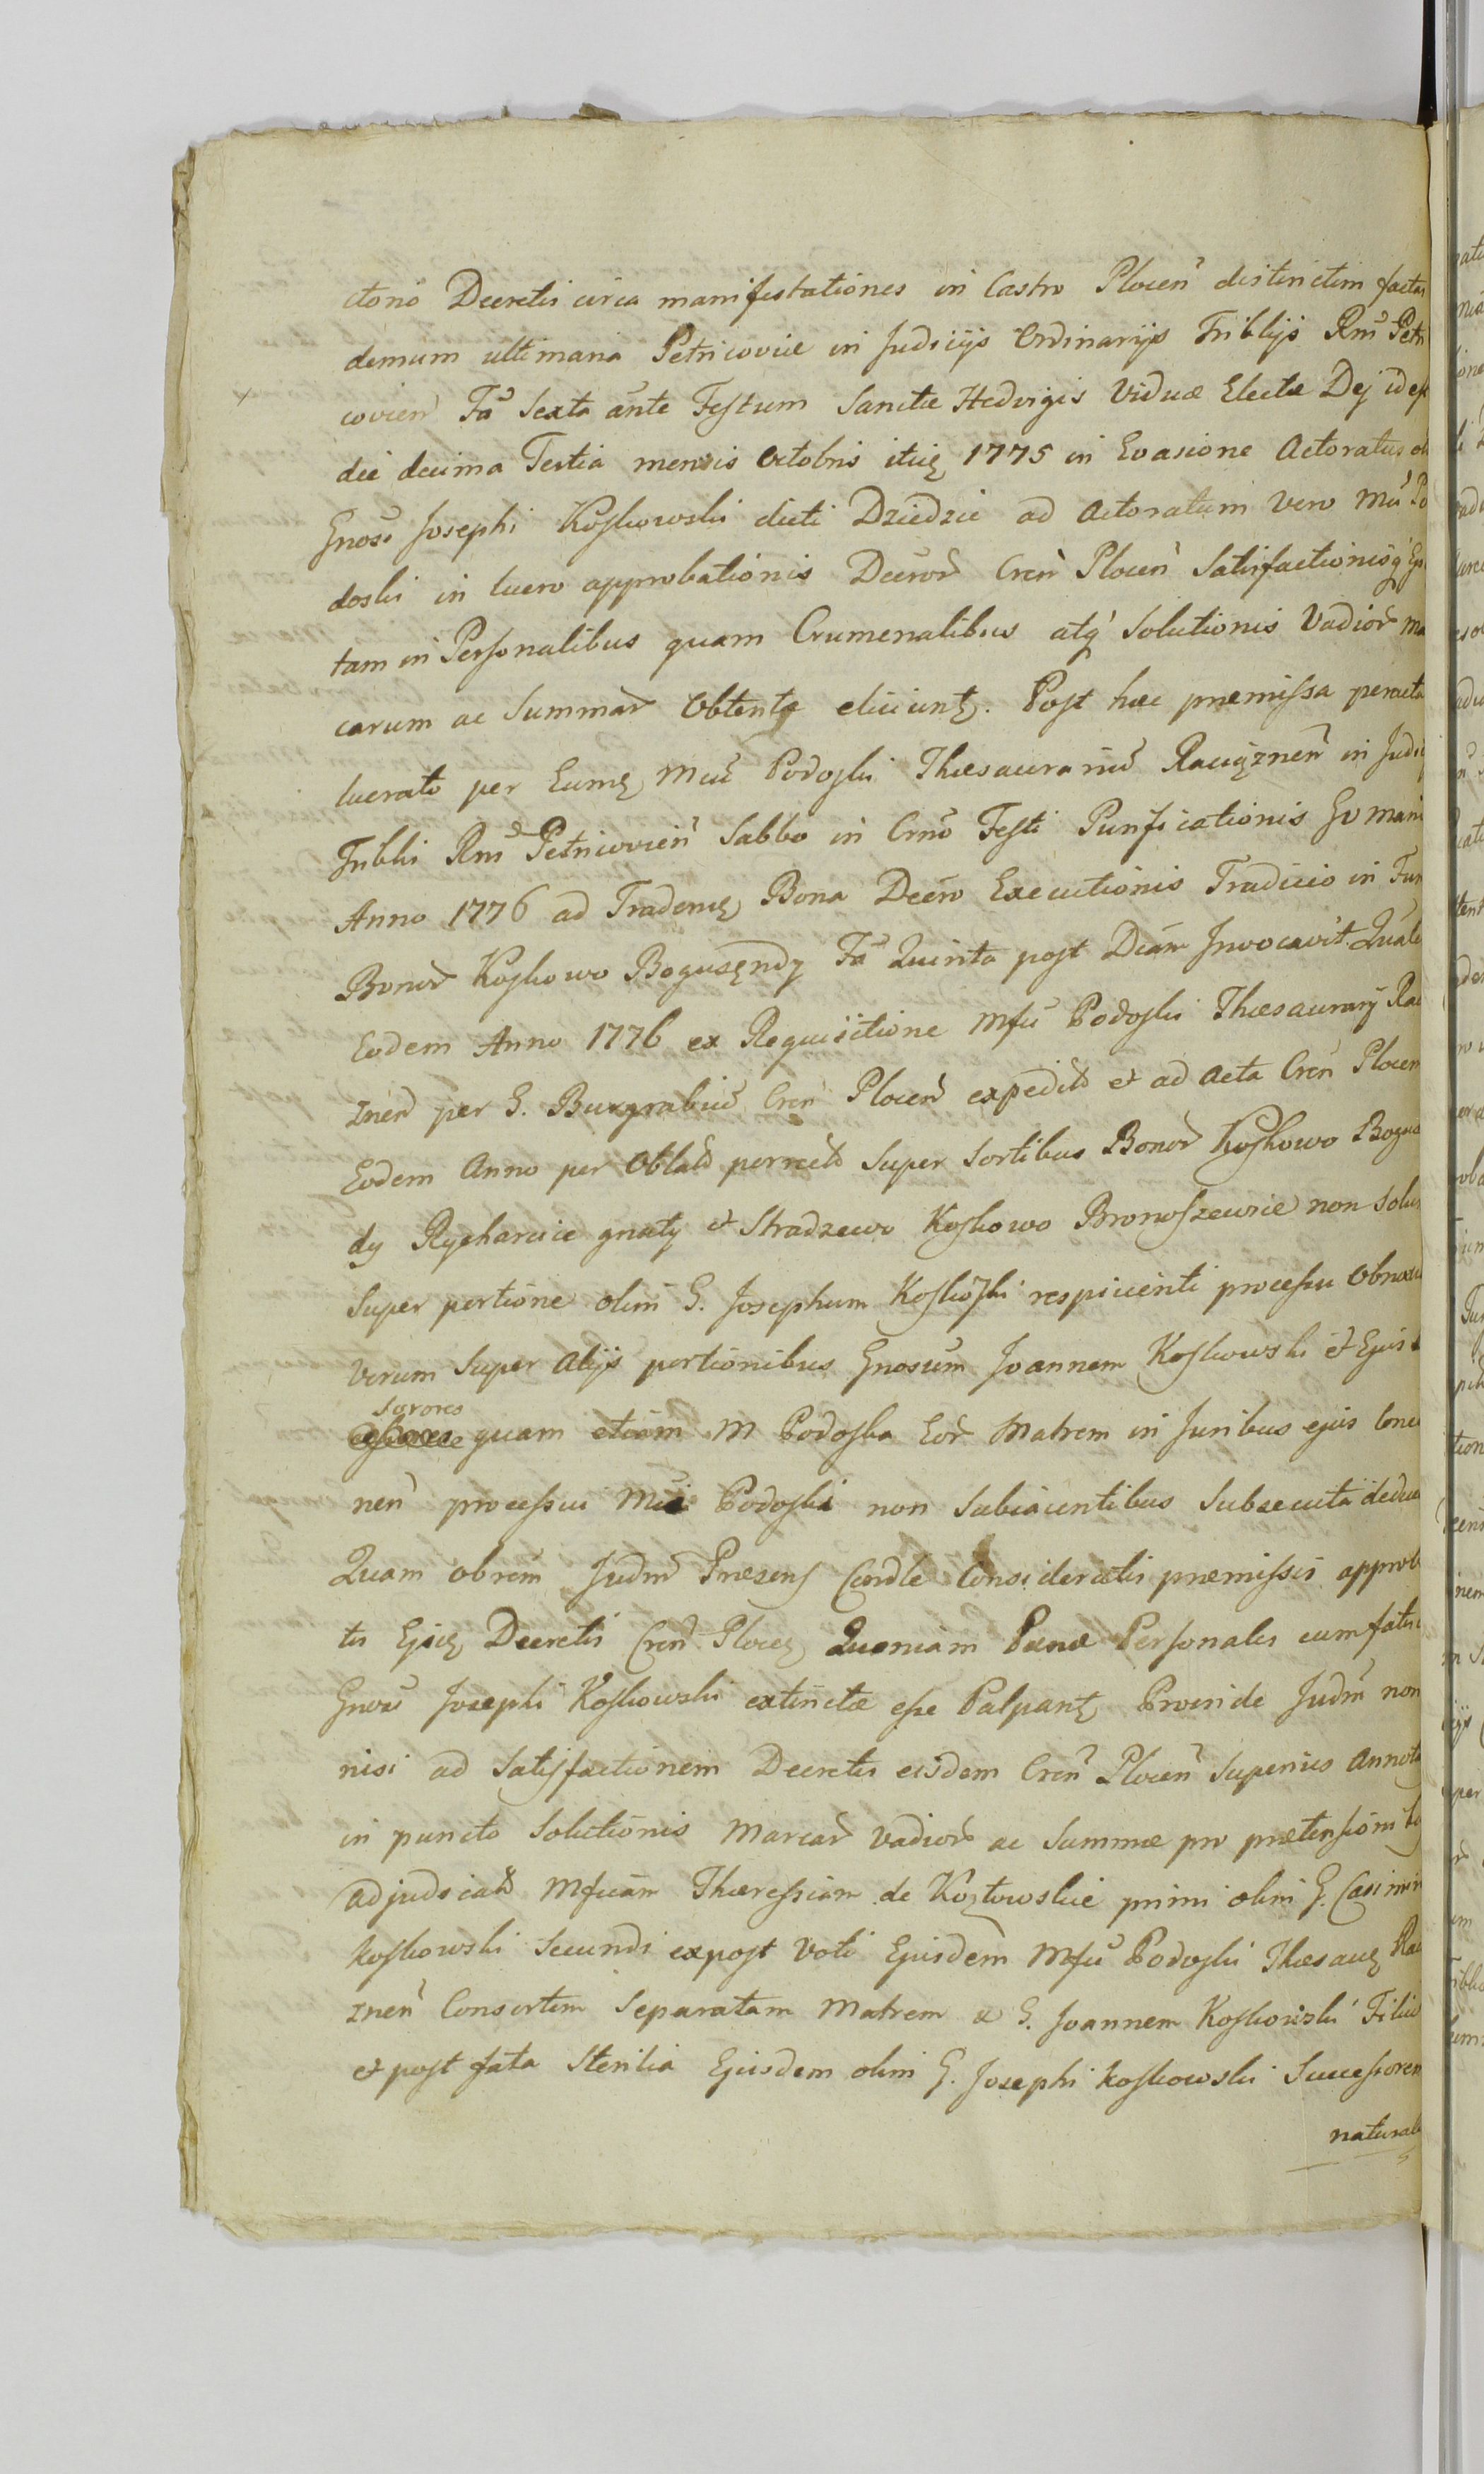 ctorio Decretis circa manifestationes in Castro Plocen distinctim factas
demum ultimaria Petricoviæ in Judicijs Ordinarijs Triblijs Rni Petri
covien Fa Sexta ante Festum Sanctæ Hedvigis Viduæ Electæ Dej id est
die decima Tertia mensis Octobris 1775 in Evasione Actoratus
Gnosi Josephi Koskowski dicti Dziedzic ad Actoratum vero Mci Po
doski in lucro approbationis Decror Cren Plocen Satisfactionisq
tam in Personalibus quam Crumenalibus atq Solutionis Vadior mar
carum ac Summar Obtenta eliciunt. Post hæc præmissa peracta
lucrato per Eund Mcu Podoski Thesaurariu Raciąznen in Judic
Triblli Rni Petricovien Sabbo in Crno Festi Purificationis
Anno 1776 ad Tradend Bona Decro Executionis Tradicio in Fun
Bonor Koskowo Bogusendy Fa Quinta post Dcam Invocavit
Eodem Anno 1776 ex Requisitione Mfci Podoski Thesaurarij Rac
znen per G. Burgrabiu Cren Plocen expedit et ad Acta Cren Plocen
Eodem Anno per Oblat porrect Super Sortibus Bonor Koskowo Bogus
dy Rycharcice gnaty et Stradzewo Koskowo Bronoszewice non Solum
Super portione olim G. Josephum Koskoski respicienti processu Obnox
verum Super Alijs portionibus Gnosum Joannem Koskowski et Ejus
Sorores
quam etiam M Podoska Eor Matrem in Juribus ejus
nen processui Mci Podoski non Subiacentibus Subsecuta
Quam obrem Judm Præsens Consideratis præmissis approba
tis Decretis Cren Plocen Quoniam Pænæ Personales cum fatis
Gnosi Josephi Koskowski extinctæ esse Palpant Proinde Judm non
nisi ad Satisfactionem Decretis eisdem Cren Plocen Superius Annota
in puncto Solutionis Marcar Vadior ac Summæ pro prætensioni
adjudicat Mficam Theressiam de Kozłowskie primi olim G. Casimiri
koskowski Secundi expost Voti Ejusdem Mfci Podoski Thesaur Rac
znen Consortem Separatam Matrem & G. Joannem Koskowski Filiu
et post fata Sterilia Ejusdem olim G. Josephi koskowski Successorem
natural